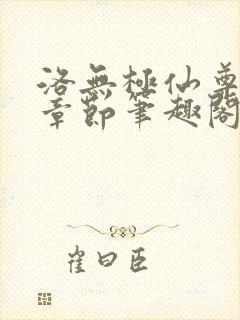 洛無極仙尊
章節筆趣閣
崔曰臣